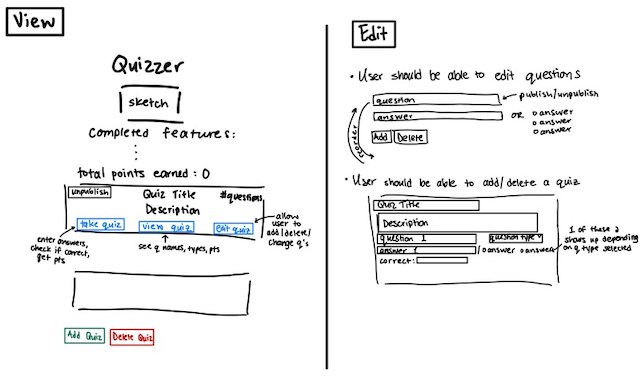 View
Quizzer
sketch
Completed features:
total points earned : 0
unpublish
Quiz Title
#questions
Description
take quiz
view quiz
edit quiz
enter answers,
check if correct,
get pts
see q names, types, pts
allow
user to
add/delete/
change q's
Add Quiz
Delete Quiz
Edit
• User should be able to edit questions
question
publish/unpublish
answer
OR o answer
o answer
o answer
Add
Delete
reorder
• User should be able to add/delete a quiz
Quiz Title
Description
question 1
question type
answer 1
/ o answer o answer
correct:
1 of these 2
shows up depending
on q type selected